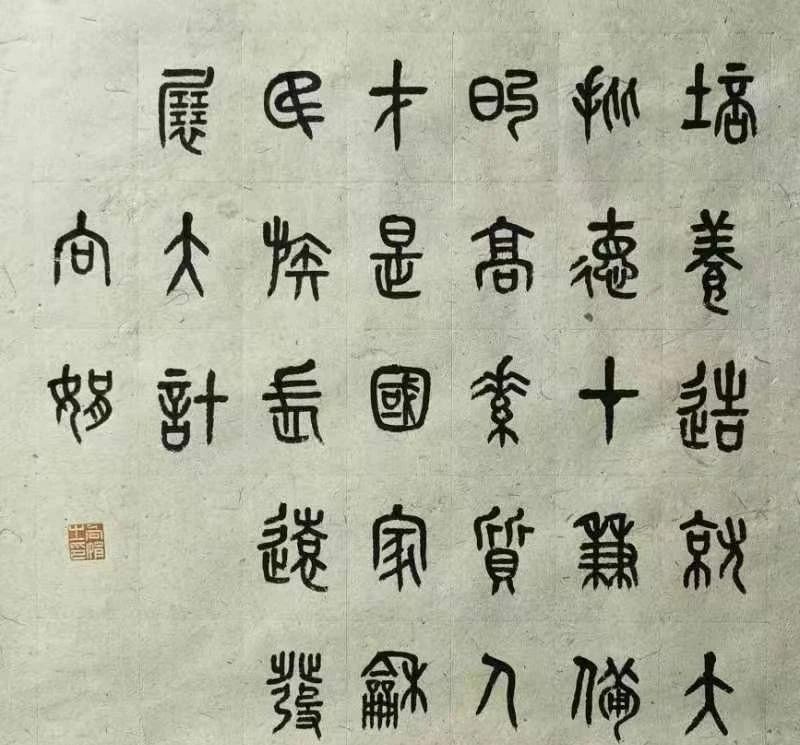 培養造就大
批德才兼備
旳高素質人
才是國家龢
民族長遠發
展大計
向娟